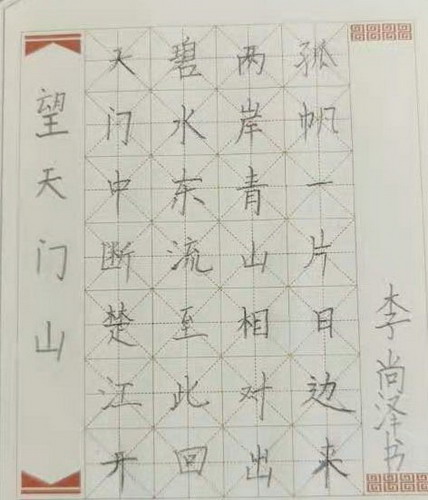 望天门山
天门中断楚江开
碧水东流至此回
两岸青山相对出
孤帆一片日边来
李尚泽书